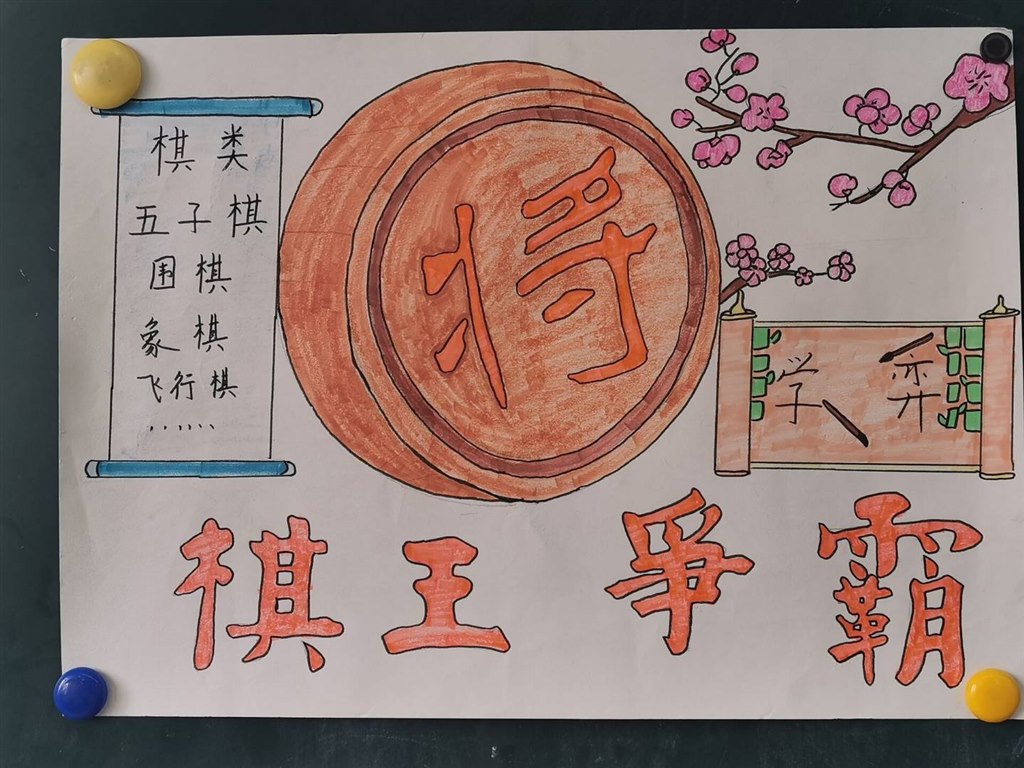 棋类
五子棋
围棋
象棋
飞行棋
......
将
学弈
棋王争霸